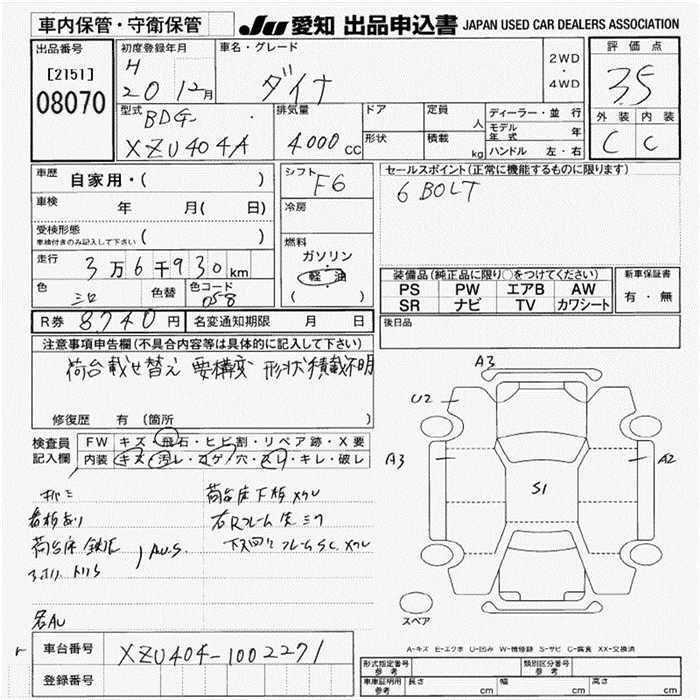 車内保管・守衛保管
JU 愛知 出品申込書 JAPAN USED CAR DEALERS ASSOCIATION
出品番号
[2151]
08070
初度登録年月
H
20 12月
車名・グレード
ダイナ
2WD
・
4WD
評価点
3.5
外装 内装
C C
型式
BDG-
XZU404A
排気量
4000 CC
ドア
形状
定員
人
積載
kg
ディーラー・並 行
モデル年式 年
ハンドル 左・右
車歴 自家用・( )
車検 年 月( 日)
受検形態
車検付きのみ記入して下さい ( )
走行 3万6千930km
色
シロ
色替
色コード
058
シフト
F6
冷房
燃料
ガソリン
・
軽 油
( )
セールスポイント(正常に機能するものに限ります)
6 BOLT
装備品(純正品に限り○をつけてください)
PS PW エアB AW
SR ナビ TV カワシート
新車保証書
有・無
後日品
R券 8,740円 名変通知期限 月 日
注意事項申告欄(不具合内容等は具体的に記入して下さい)
荷台載せ替え 要構変 形状積載不明
修復歴 有 (箇所 )
検査員記入欄
FW キズ・飛石・ヒビ割・リペア跡・X要
内装 キズ・汚レ・コゲ・穴・スレ・キレ・破レ
看板あり
荷台床下板
右Rフレーム先
A3
U2
A3
A2
S1
スペア
A-キズ E-エクボ U-凹み W-補修跡 S-サビ C-腐食 XX-交換済
車台番号 XZU404-1002271
登録番号
形式指定番号
参考
類別区分番号
参考
車庫証明用
参考
長さ cm 幅 cm 高さ cm